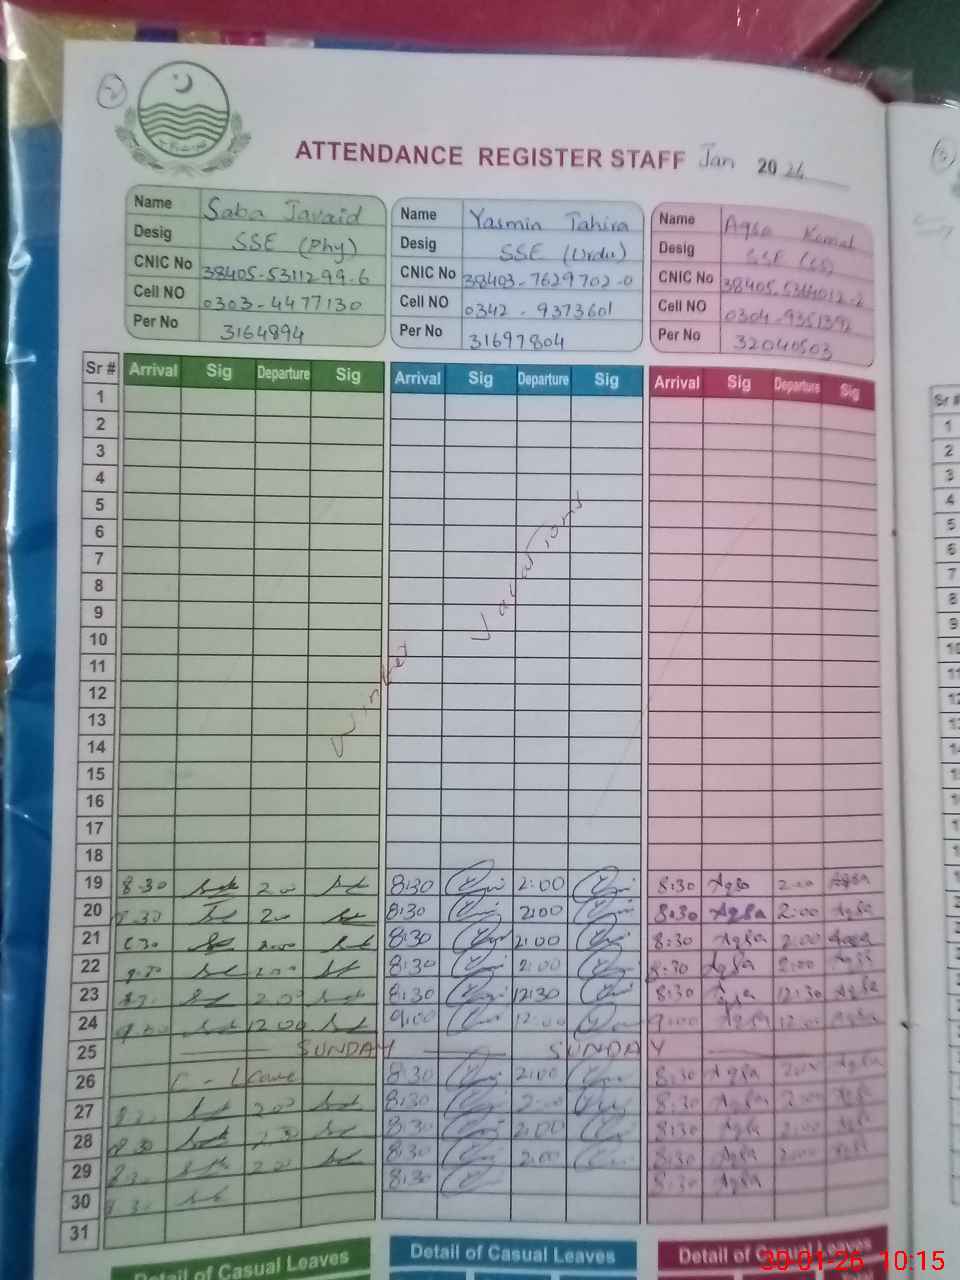 2
ATTENDANCE REGISTER STAFF Jan 20 26
Name Saba Javaid
Desig SSE (Phy)
CNIC No 38405-5311299-6
Cell NO 0303-4477130
Per No 3164894
Name Yasmin Tahira
Desig SSE (Urdu)
CNIC No 38403-7629702-0
Cell NO 0342-9373601
Per No 31697804
Name Aqsa Kamal
Desig SSE (CS)
CNIC No
Cell NO
Per No 32040503
Sr # Arrival Sig Departure Sig Arrival Sig Departure Sig Arrival Sig Departure Sig
1
2
3
4
5
6
7
8
9
10
11
12
13
14
15
16
17
18
Winter Vacations
19 8-30 2.00 8:30 2:00 8:30 Aqsa 2:00 Aqsa
20 8.30 2.00 8:30 2:00 8:30 Aqsa 2:00 Aqsa
21 8:30 2:00 8:30 Aqsa 2:00 Aqsa
22 8:30 2:00 8:30 Aqsa 2:00 Aqsa
23 2.00 8:30 12:30 8:30 Aqsa 12:30 Aqsa
24 9.00 12.00 9:00 12:00 9:00 Aqsa 12:00 Aqsa
25 SUNDAY SUNDAY
26 C-Leave 8:30 2:00 8:30 Aqsa 2:00 Aqsa
27 2.00 8:30 2:00 8:30 Aqsa 2:00 Aqsa
28 8:30 2:00 8:30 Aqsa 2:00 Aqsa
29 2.00 8:30 2:00 8:30 Aqsa 2:00 Aqsa
30 8.30 8:30 8:30 Aqsa
31
Detail of Casual Leaves Detail of Casual Leaves Detail of Casual Leaves
30-01-26 10:15